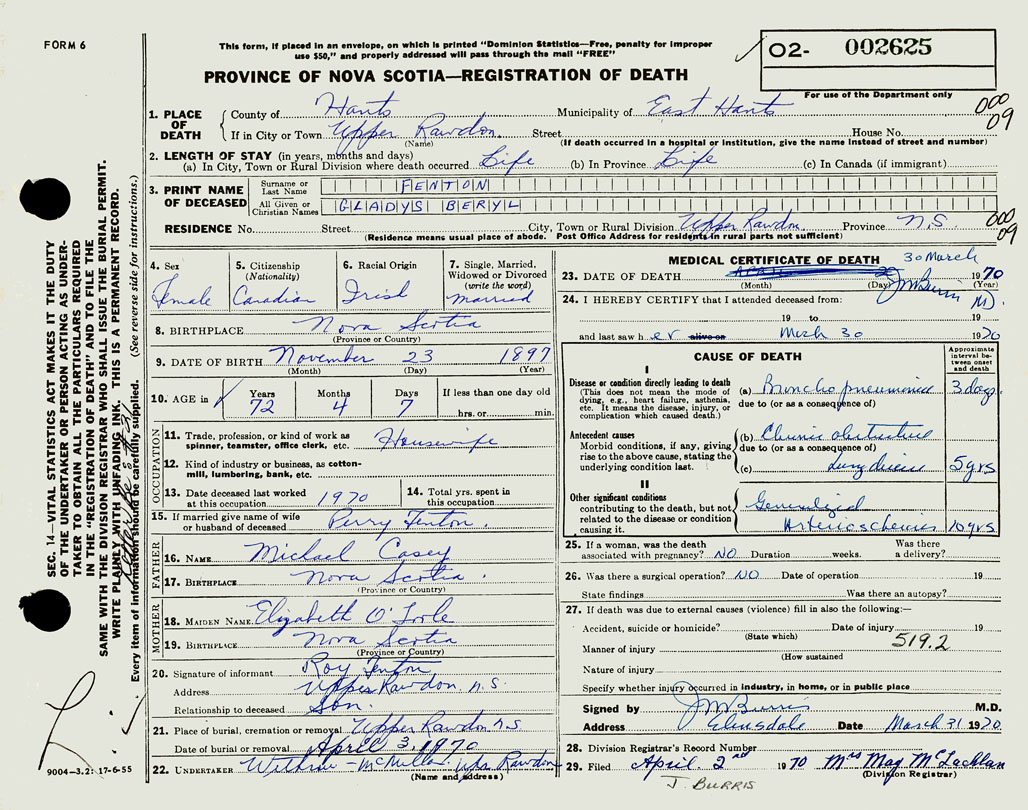 FORM 6
This form, if placed in an envelope, on which is printed "Dominion Statistics—Free, penalty for improper
use $50," and properly addressed will pass through the mail "FREE"
O2- 002625
For use of the Department only
PROVINCE OF NOVA SCOTIA—REGISTRATION OF DEATH
000
09
1. PLACE OF DEATH
County of Hants Municipality of East Hants
If in City or Town Upper Rawdon Street House No.
(Name) (If death occurred in a hospital or institution, give the name instead of street and number)
2. LENGTH OF STAY (in years, months and days)
(a) In City, Town or Rural Division where death occurred Life (b) In Province Life (c) In Canada (if immigrant)
3. PRINT NAME OF DECEASED
Surname or Last Name FENTON
All Given or Christian Names GLADYS BERYL
RESIDENCE No. Street City, Town or Rural Division Upper Rawdon Province N.S
(Residence means usual place of abode. Post Office Address for residents in rural parts not sufficient)
000
09
4. Sex
Female
5. Citizenship
(Nationality)
Canadian
6. Racial Origin
Irish
7. Single, Married,
Widowed or Divorced
(write the word)
married
8. BIRTHPLACE Nova Scotia
(Province or Country)
9. DATE OF BIRTH November 23 1897
(Month) (Day) (Year)
10. AGE in
Years 72
Months 4
Days 7
If less than one day old
hrs. or min.
OCCUPATION
11. Trade, profession, or kind of work as
spinner, teamster, office clerk, etc. Housewife
12. Kind of industry or business, as cotton-
mill, lumbering, bank, etc.
13. Date deceased last worked
at this occupation 1970
14. Total yrs. spent in
this occupation
15. If married give name of wife
or husband of deceased Perry Fenton.
FATHER
16. NAME Michael Casey
17. BIRTHPLACE Nova Scotia.
(Province or Country)
MOTHER
18. MAIDEN NAME Elizabeth O'Toole
19. BIRTHPLACE Nova Scotia
(Province or Country)
20. Signature of informant Roy Fenton
Address Upper Rawdon, N.S.
Relationship to deceased Son.
21. Place of burial, cremation or removal Upper Rawdon N.S
Date of burial or removal April 3, 1970
22. UNDERTAKER Withrow - McMillan Rawdon
(Name and address)
MEDICAL CERTIFICATE OF DEATH
30 March
23. DATE OF DEATH APRIL 1970
(Month) (Day) (Year)
JM Burris MD
24. I HEREBY CERTIFY that I attended deceased from:
19 to 19
and last saw h er alive on Mch 30 1970
CAUSE OF DEATH
Approximate interval between onset and death
I
Disease or condition directly leading to death
(This does not mean the mode of
dying, e.g., heart failure, asthenia,
etc. It means the disease, injury, or
complication which caused death.)
(a) Bronchopneumonia 3 days
due to (or as a consequence of)
Antecedent causes
Morbid conditions, if any, giving
rise to the above cause, stating the
underlying condition last.
(b) Chronic obstructive
due to (or as a consequence of)
(c) lung disease 5 yrs
II
Other significant conditions
contributing to the death, but not
related to the disease or condition
causing it.
Generalized
10 yrs
25. If a woman, was the death
associated with pregnancy? NO Duration weeks. Was there
a delivery?
26. Was there a surgical operation? NO Date of operation 19
State findings Was there an autopsy?
27. If death was due to external causes (violence) fill in also the following:—
Accident, suicide or homicide? Date of injury 19
(State which)
519.2
Manner of injury
(How sustained
Nature of injury
Specify whether injury occurred in industry, in home, or in public place
Signed by JM Burris M.D.
Address Elmsdale Date March 31 1970
28. Division Registrar's Record Number
29. Filed April 2nd 1970 Mrs May McLachlan
(Division Registrar)
J. BURRIS
SEC. 14—VITAL STATISTICS ACT MAKES IT THE DUTY
OF THE UNDERTAKER OR PERSON ACTING AS UNDER-
TAKER TO OBTAIN ALL THE PARTICULARS REQUIRED
IN THE "REGISTRATION OF DEATH" AND TO FILE THE
SAME WITH THE DIVISION REGISTRAR WHO SHALL ISSUE THE BURIAL PERMIT.
WRITE PLAINLY WITH UNFADING INK. THIS IS A PERMANENT RECORD.
Every item of information should be carefully supplied. (See reverse side for instructions.)
9004—3.2: 17-6-55